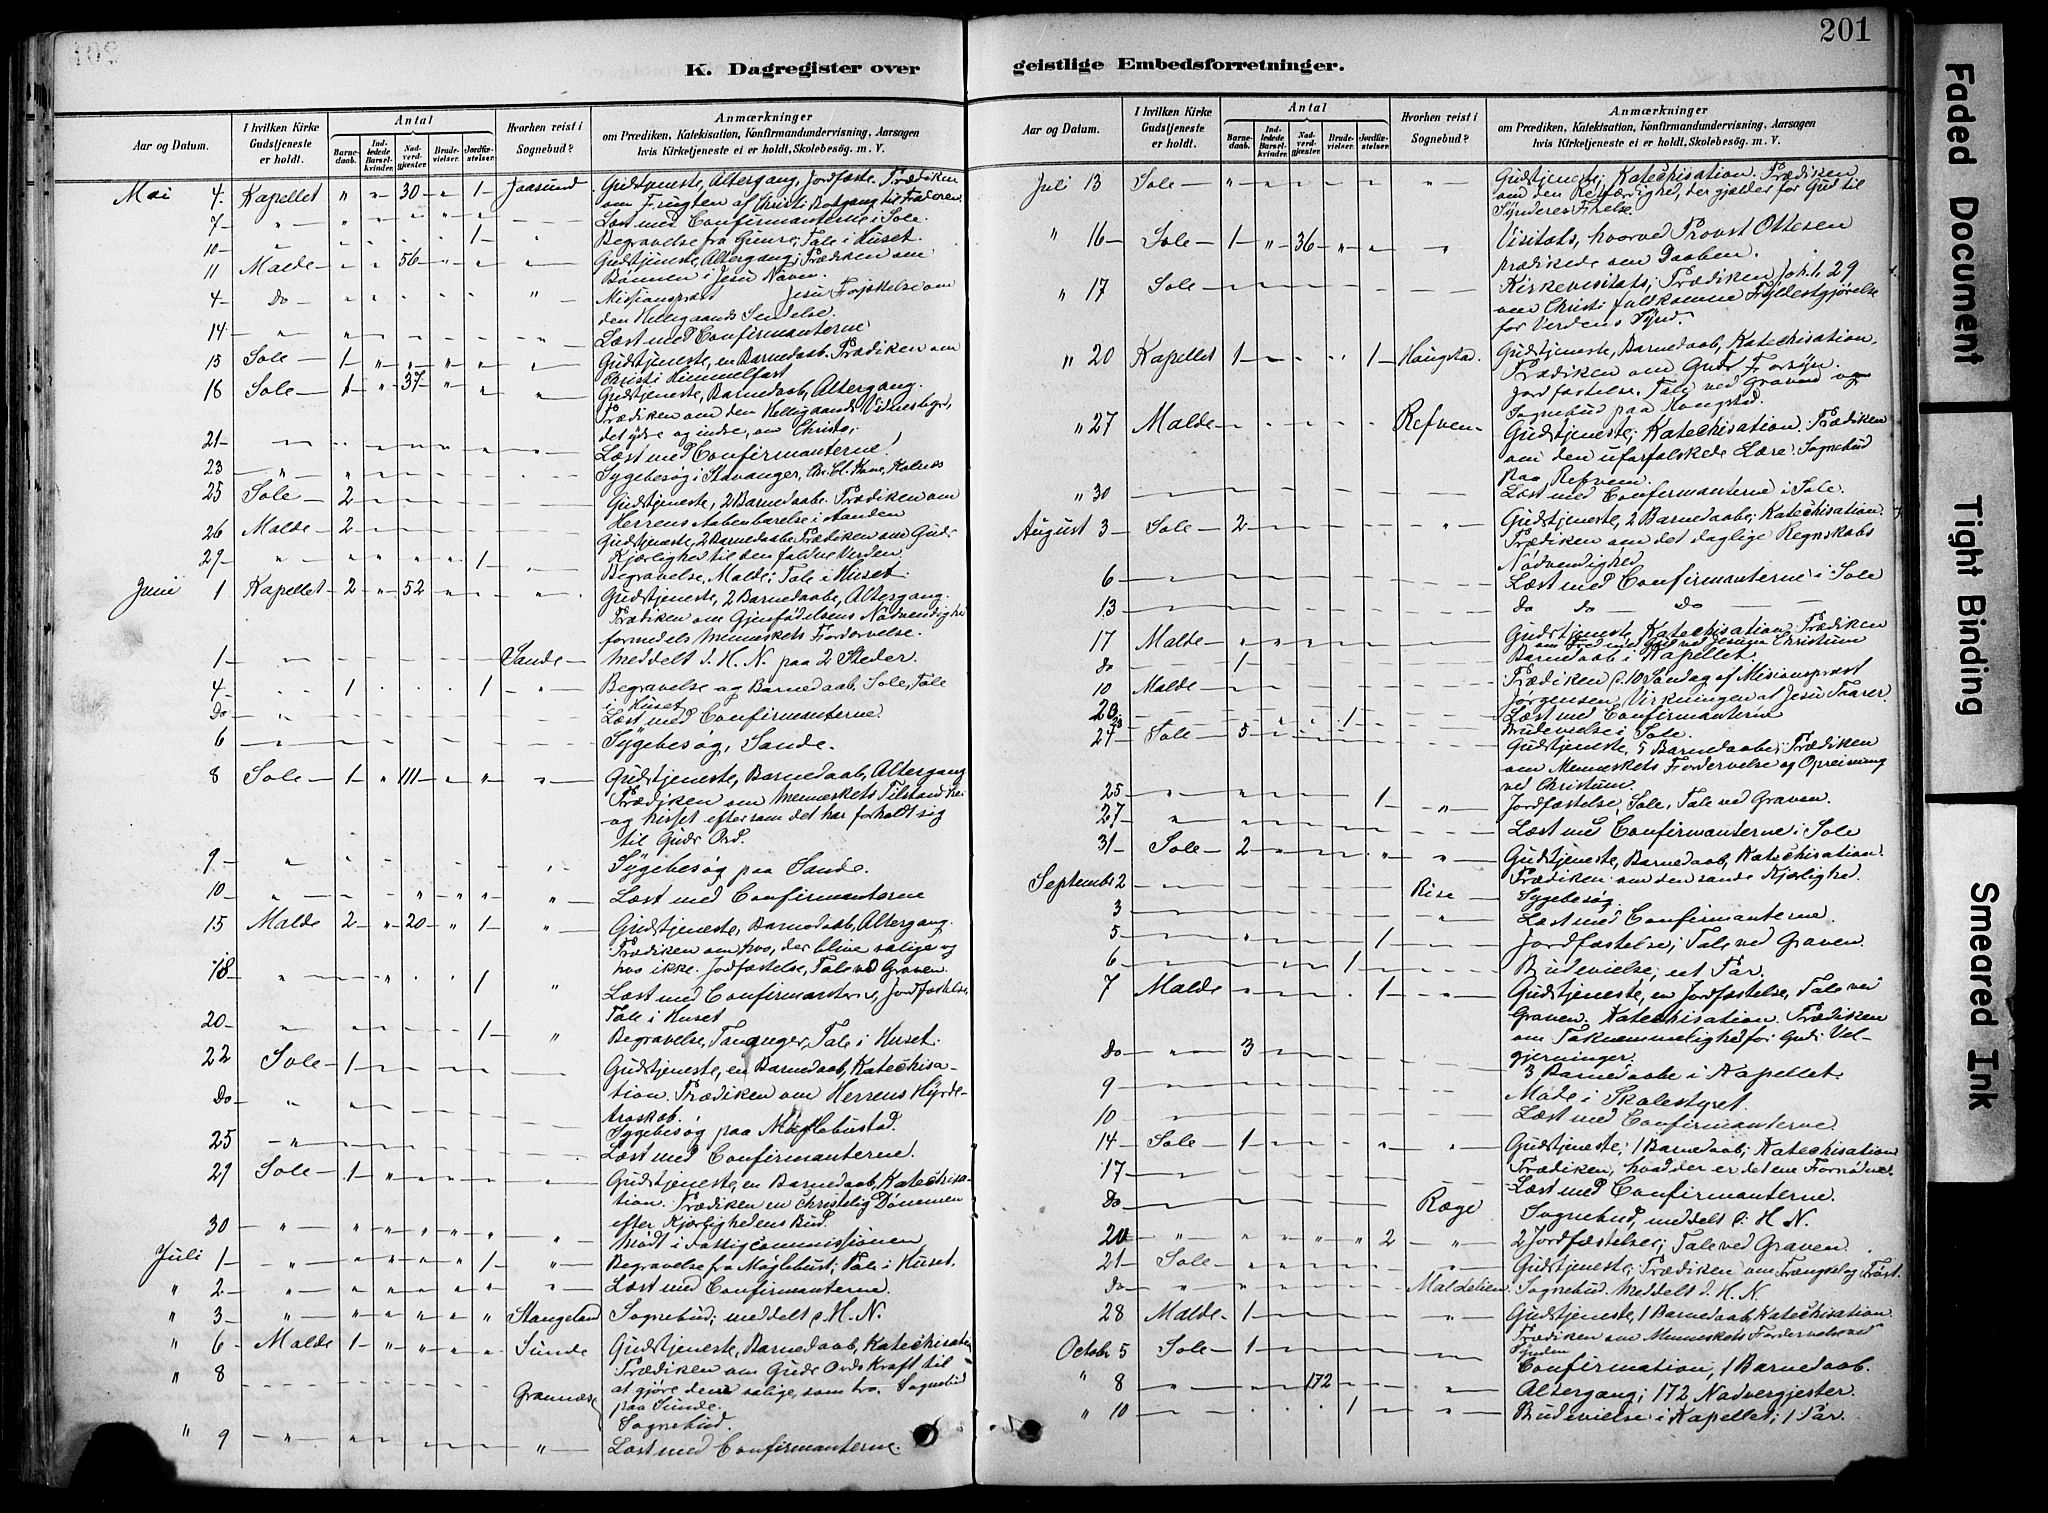 201
K. Dagregister over geistlige Embedsforretninger.
Aar og Datum.
I hvilken Kirke Gudstjeneste er holdt.
Antal
Barnedaab.
Indledede Barselkvinder.
Nadverdgjæster
Brudevielser.
Jordfæstelser.
Hvorhen reist i Sognebud?
Anmærkninger
om Prædiken, Katekisation, Konfirmandundervisning, Aarsagen
hvis Kirketjeneste ei er holdt, Skolebesøg. m. V.
Mai 4. Kapellet " " 30 " 1 Jaasund Gudstjeneste, Altergang, Jordfæste. Prædiken
om Frugten af Christi Botgang til Faderen.
7 Læst med Confirmanterne i Sole.
10 1 Begravelse fra; Tale i Huset.
11 Malde 56 Gudstjeneste, Altergang; Prædiken om
Bønnen i Jesu Navn.
4 Do Missionspræst Jesu Forjættelse om
den Helligaands Sendelse.
14 Læst med Confirmanterne
15 Sole 1 Gudstjeneste, en Barnedaab. Prædiken om
Christi Himmelfart
18 Sole 1 37 Gudstjeneste, Barnedaab, Altergang.
Prædiken om den Helligaands Vidnesbyrd,
det ydre og indre, om Christo.
21 Læst med Confirmanterne!
23 Sygebesøg i Stavanger,
25 Sole 2 Gudstjeneste, 2 Barnedaabe. Prædiken om
Herrens Aabenbarelse i Aanden
26 Malde 2 Gudstjeneste, 2 Barnedaabe. Prædiken om Guds
Kjærlighed til den faldne Verden.
29 1 Begravelse, Malde; Tale i Huset.
Juni 1 Kapellet 2 " 52 Gudstjeneste, 2 Barnedaabe, Altergang.
Prædiken om Gjenfødelsens Nødvendighed
formedels Menneskets Fordærvelse.
1 Sande Meddelt d. H. N. paa 2 Steder.
4 1 1 Begravelse og Barnedaab, Sole, Tale
i Huset
Do Læst med Confirmanterne.
6 Sygebesøg, Sande.
8 Sole 1 " 111 Gudstjeneste, Barnedaab, Altergang
Prædiken om Menneskets Tilstand her
og hisset eftersom det har forholdt sig
til Guds Ord.
9 Sygebesøg paa Sande.
10 Læst med Confirmanterne
15 Malde 2 " 20 " 1 Gudstjeneste, Barnedaab, Altergang.
Prædiken om, hvo, der blive salige og
hvo ikke. Jordfæstelse, Tale ved Graven.
18 1 Læst med Confirmanterne, Jordfæstelse,
Tale i Huset
20 1 Begravelse, Tananger, Tale i Huset.
22 Sole 1 Gudstjeneste, en Barnedaab, Katechisa-
tion. Prædiken om Herrens Hyrde-
troskab.
Do Sygebesøg paa Møglebustad.
25 Læst med Confirmanterne!
29 Sole 1 Gudstjeneste, en Barnedaab, Katechisa-
tion. Prædiken en christelig Dømmen
efter Kjærlighedens Bud.
30 Mødt i Fattigcommissionen
Juli 1 1 Begravelse fra Møglebust; Tale i Huset.
" 2 Læst med Confirmanterne.
" 3 Stangeland Sognebud; meddelt d. H. N.
" 6 Malde 1 Sunde Gudstjeneste, Barnedaab, Katechisation
Prædiken om Guds Ords Kraft til
at gjøre dem salige, som tro. Sognebud
paa Sunde.
" 8 Grannæs Sognebud.
" 9 Læst med Confirmanterne.
Aar og Datum.
I hvilken Kirke Gudstjeneste er holdt.
Antal
Barnedaab.
Indledede Barselkvinder.
Nadverdgjæster.
Brudevielser.
Jordfæstelser.
Hvorhen reist i Sognebud?
Anmærkninger
om Prædiken, Katekisation, Konfirmandundervisning, Aarsagen
hvis Kirketjeneste ei er holdt, Skolebesøg. m. V.
Juli 13 Sole Gudstjeneste; Katechisation. Prædiken
om den Retfærdighed, der gjælder for Gud til
Synderes Frelse.
" 16 Sole 1 " 36 Visitats, hvorved Provst Ottesen
prædikede om Daaben.
" 17 Sole Kirkevisitats; Prædiken Joh. 1. 29
om Christi fuldkomne Fyldestgjørelse
for Verdens Synd.
" 20 Kapellet 1 1 Haugsta. Gudstjeneste, Barnedaab, Katechisation.
Prædiken om Guds Forsyn.
Jordfæstelse, Tale ved Graven og
Sognebud paa Haugstad.
" 27 Malde Refvem Gudstjeneste; Katechisation. Prædiken
om den uforfalskede Lære. Sognebud
Paa Refvem.
" 30 Læst med Confirmanterne i Sole.
August 3 Sole 2 Gudstjeneste, 2 Barnedaabe; Katechisation.
Prædiken om det daglige Regnskabs
Nødvendighed
6 Læst med Confirmanterne i Sole
13 Do Do Do
17 Malde Gudstjeneste, Katechisation. Prædiken
om Fred med Gud ved Jesum Christum
Do 1 Barnedaab i Kapellet.
10 Malde Prædiken p. 10 Søndag af Missionspræst
Jørgensen. Virkningen af Jesu Taarer.
20 Læst med Confirmanterne
23 1 Brudevielse i Sole.
24 Sole 5 Gudstjeneste, 5 Barnedaabe; Prædiken
om Menneskets Fordervelse og Opreisning
ved Christum.
25 1 Jordfæstelse, Sole, Tale ved Graven.
27 Læst med Confirmanterne i Sole
31 Sole 2 Gudstjeneste, Barnedaab, Katechisation.
Prædiken om den sande Kjærlighed.
Septembr 2 Risæ Sygebesøg.
3 Læst med Confirmanterne.
5 1 Jordfæstelse; Tale ved Graven.
6 1 Brudevielse; et Par.
7 Malde 1 Gudstjeneste, en Jordfæstelse, Tale ved
Graven. Katechisation. Prædiken
om Taknemmelighed for Guds Vel-
gjerninger.
Do 3 3 Barnedaabe i Kapellet.
9 Møde i Skolestyret.
10 Læst med Confirmanterne.
14 Sole 1 Gudstjeneste; 1 Barnedaab; Katechisation
Prædiken, hvad der er det ene Fornødne.
17 Læst med Confirmanterne.
Do Ræge Sognebud, meddelt d. H. N.
20 2 2 Jordfæstelser; Tale ved Graven.
21 Sole Gudstjeneste; Prædiken om Trængsel og Trøst.
Do Maldelien Sognebud. Meddelt d. H. N.
28 Malde 1 Gudstjeneste, 1 Barnedaab, Katechisation
Prædiken om Menneskets Fordervelse ved
Synden
Octobr 5 Sole 1 Confirmation, 1 Barnedaab.
" 8 172 Altergang; 172 Nadvergjester
" 10 1 Brudevielse i Kapellet; 1 Par.
Faded Document
Tight Binding
Smeared Ink